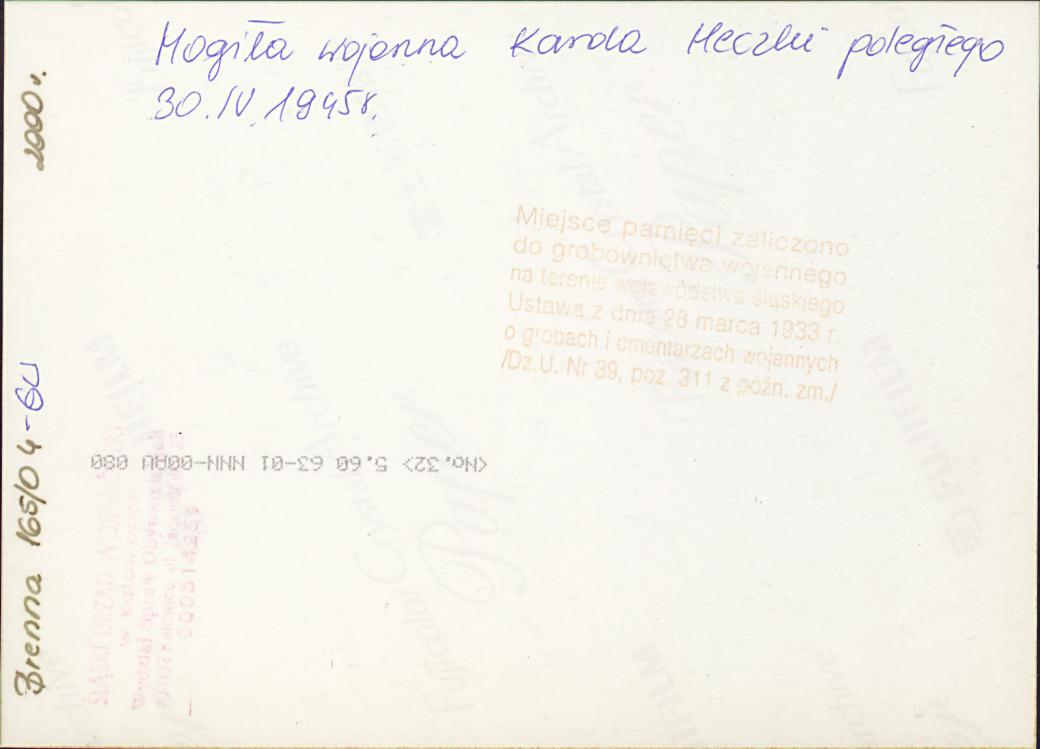 Mogiła wojenna Karola Heczki poległego
30.IV.1945r.
2000 r.
Brenna 165/04-GU
Miejsce pamięci zaliczono
do grobownictwa wojennego
na terenie województwa śląskiego
Ustawa z dnia 28 marca 1933 r.
o grobach i cmentarzach wojennych
/Dz.U. Nr 39, poz. 311 z późn. zm./
<No.32> 5.60 63-01 NNN-00AU 080
ŚLĄSKI URZĄD WOJEWÓDZKI
w Katowicach
Wydział Spraw Obywatelskich
Katowice ul.
000514259
Fujicolor Crystal Archive
Paper
FUJIFILM